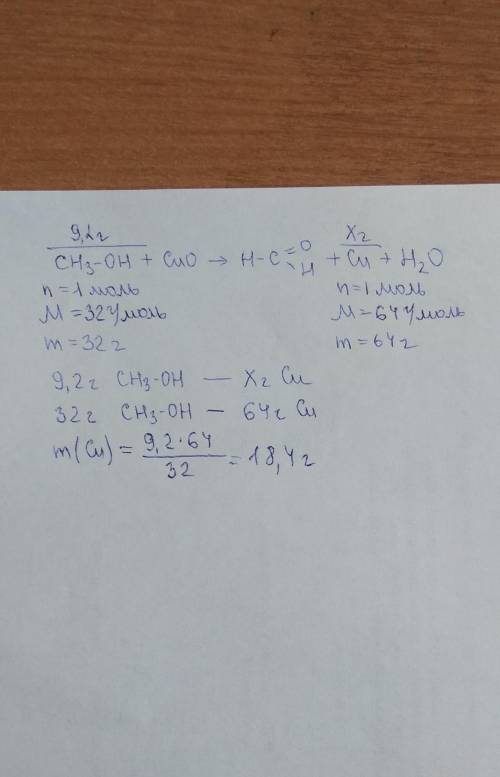 9,2г Xг
CH₃-OH + CuO → H-C=O-H + Cu + H₂O
n = 1 моль n = 1 моль
M = 32 г/моль M = 64 г/моль
m = 32 г m = 64 г
9,2 г CH₃-OH — Xг Cu
32 г CH₃-OH — 64 г Cu
m(Cu) = 9,2·64/32 = 18,4 г